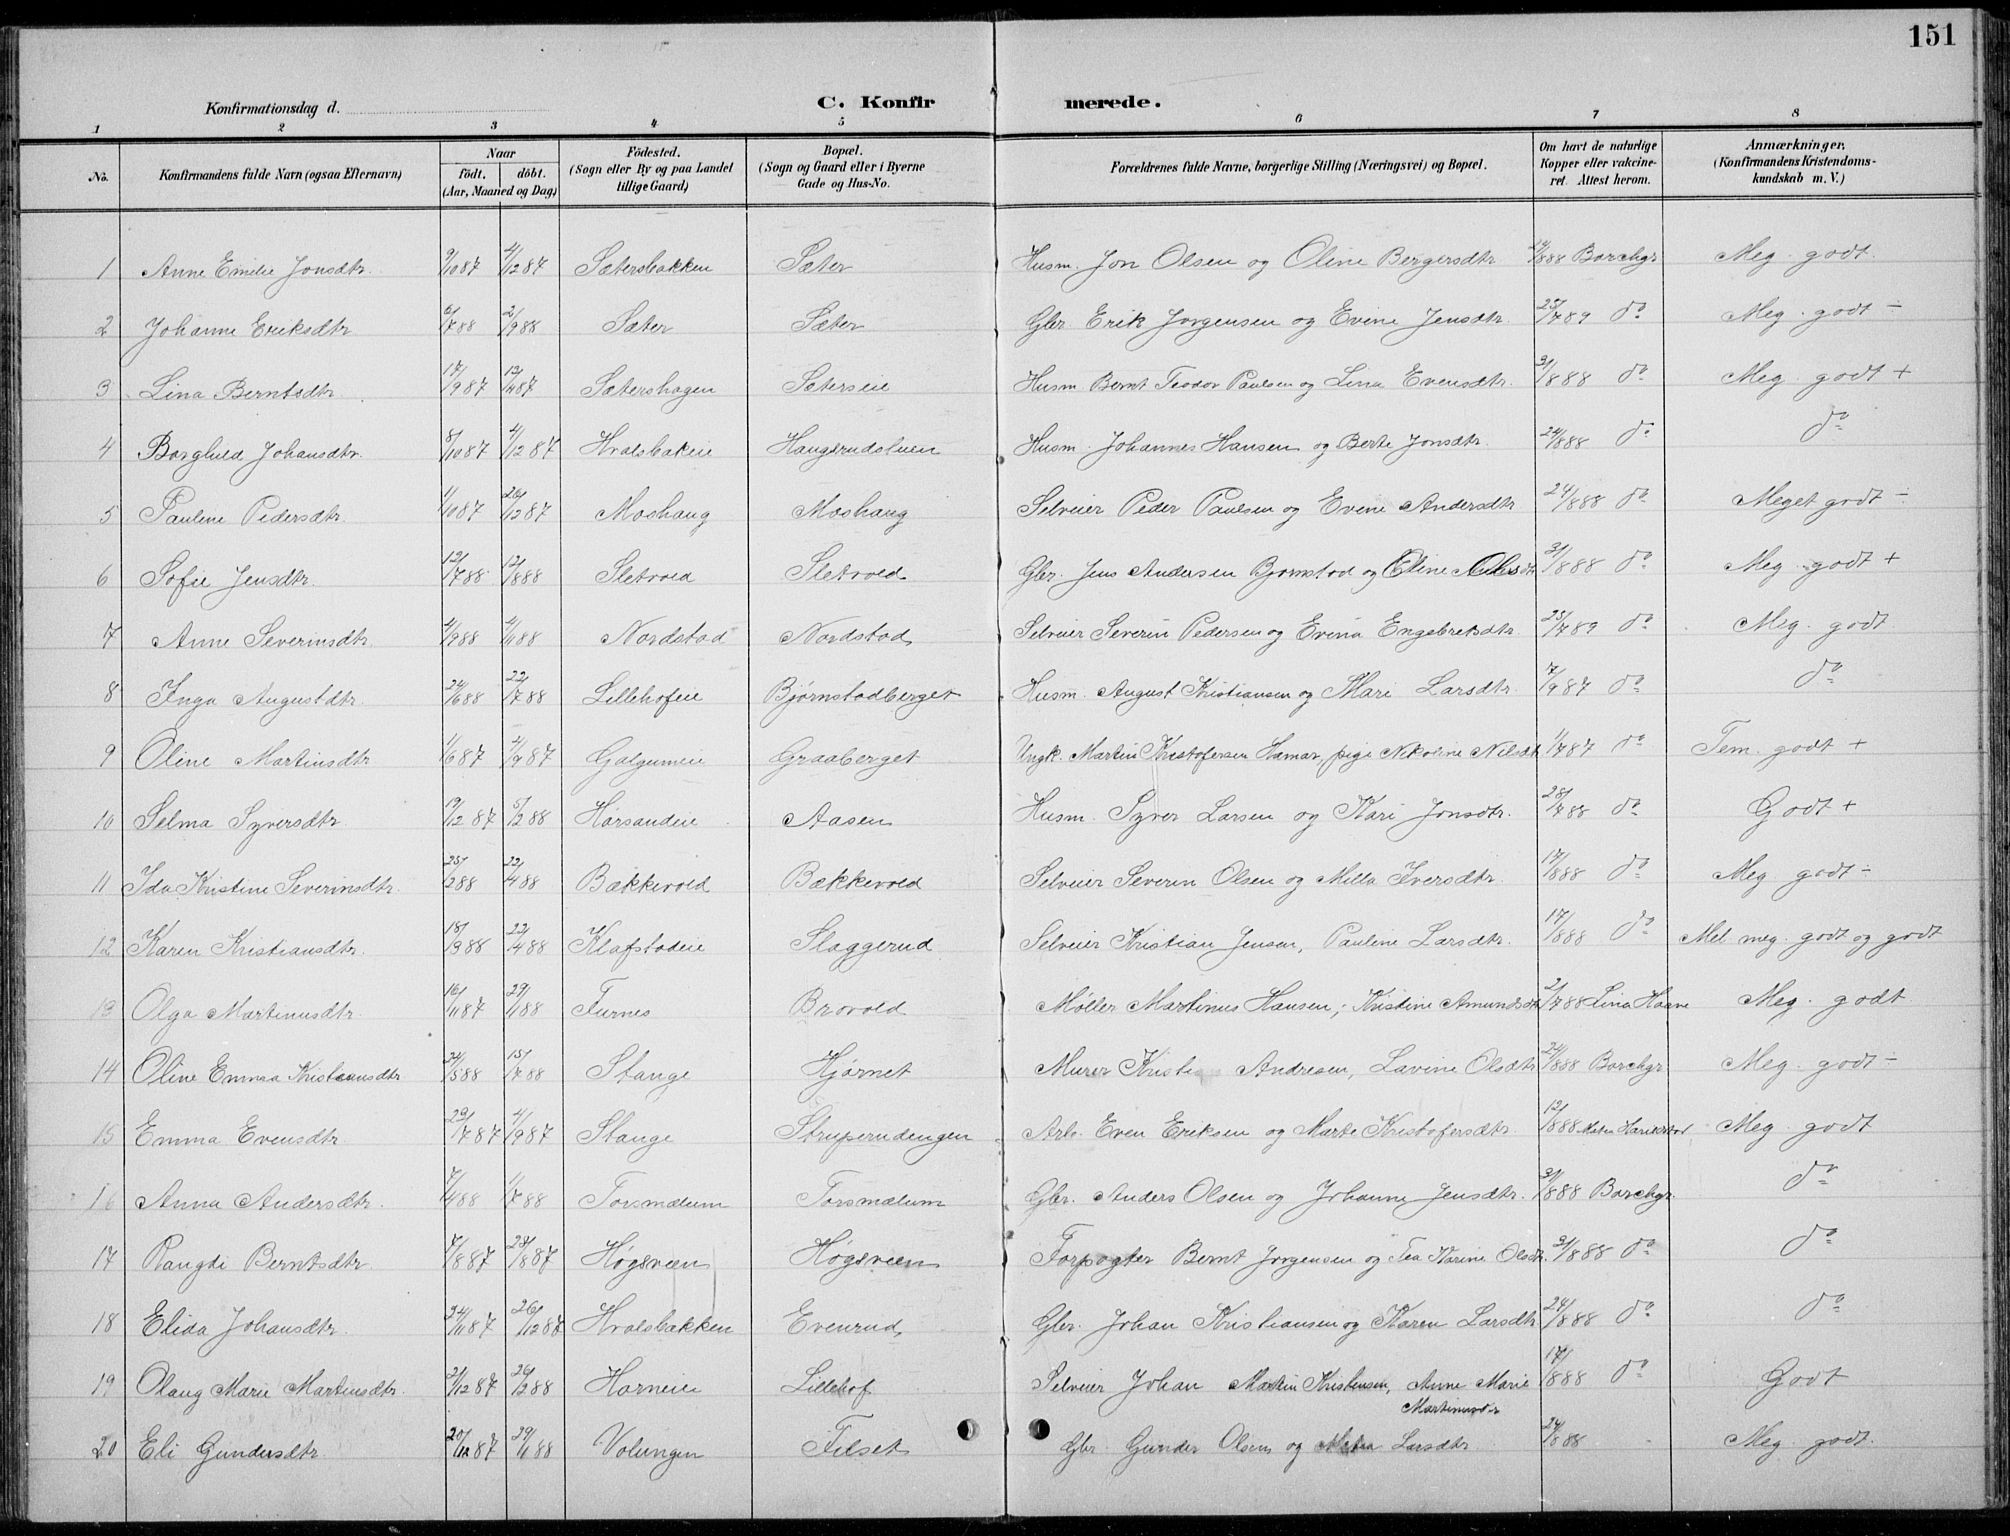 151
Konfirmationsdag d. C. Konfirmerede.
1 2 3 4 5 6 7 8
No. Konfirmandens fulde Navn (ogsaa Efternavn) Naar født. døbt. (Aar, Maaned og Dag) Fødested. (Sogn eller By og paa Landet tillige Gaard) Bopæl. (Sogn og Gaard eller i Byerne Gade og Hus-No. Forældrenes fulde Navne, borgerlige Stilling (Næringsvei) og Bopæl. Om havt de naturlige Kopper eller vakcineret. Attest herom. Anmærkninger. (Konfirmandens Kristendomskundskab m. V.)
1 Anne Emilie Jonsdtr. 9/10 87 4/12 87 Sætersbakken Sæter Husm. Jon Olsen og Oline Bergersdtr 24/8 88 Borchgr Meg. godt.
2 Johanne Eriksdtr 6/7 88 2/9 88 Sæter Sæter Gbr. Erik Jørgensen og Evine Jensdtr. 25/7 89 do Meg. godt -
3 Lina Berntsdtr. 17/9 87 Sætershagen Sæterseie Husm. Bernt Teodor Paulsen og Lina Evensdtr. 31/8 88 do Meg. godt +
4 Borghild Johansdtr. 8/10 87 4/12 87 Hvalsbakeie Haugerudstuen Husm. Johannes Hansen og Berte Jonsdtr. 24/8 88 do do
5 Pauline Pedersdtr. 1/10 87 26/12 87 Moshaug Moshaug Selveier Peder Paulsen og Evine Andersdtr 24/8 88 do Meget godt -
6 Sofie Jensdtr. 12/7 88 12/8 88 Sletvold Sletvold Gbr. Jens Andersen Bjørnstad og Oline Olesdtr 31/8 88 do Meg. godt +
7 Anne Severinsdtr. 4/9 88 4/11 88 Nordstad Nordstad Selveier Severin Pedersen og Evina Engebretsdtr 25/7 89 do Meg. godt
8 Inga Augustdtr. 24/6 88 22/7 88 Lillehofeie Bjørnstadberget Husm. August Kristiansen og Mari Larsdtr. 7/9 87 do do
9 Oline Martinsdtr 1/6 87 4/9 87 Galgumeie Graaberget Ungk. Martin Kristofersen Hamar, pige Nikoline Nilsdt 1/7 87 do Tem. godt +
10 Selma Syversdtr 19/12 87 5/2 88 Hørsandeie Aasen Husm. Syver Larsen og Kari Jonsdtr. 28/7 88 do Godt +
11 Ida Kristine Severinsdtr. 25/2 88 22/4 88 Bækkevold Bækkevold Selveier Severin Olsen og Milla Iversdtr. 17/8 88 do Meg godt -
12 Karen Kristiansdtr. 18/1 88 22/4 88 Klafstadeie Slaggerud Selveier Kristian Jensen, Pauline Larsdtr. 17/8 88 do Mel meg. godt og godt
13 Olga Martinusdtr. 16/11 87 29/1 88 Furnes Brovold Møller Martinus Hansen, Kristine Amundsdtr 2/7 88 Lina Haave Meg. godt
14 Oline Emma Kristiansdtr 24/5 88 15/7 88 Stange Hjørnet Murer Andresen, Lavine Olsdtr 24/8 88 Borchgr Meg. godt -
15 Emma Evensdtr 29/7 87 4/9 87 Stange Struperudengen Arb. Even Eriksen og Marte Kristofersdtr. 12/8 88 Meg. godt
16 Anna Andersdtr. 7/4 88 1/7 88 Torsmælum Torsmælum Gbr. Anders Olsen og Johanne Jensdtr. 31/8 88 Borchgr. do
17 Rangdi Berntsdtr. 7/8 87 28/8 87 Høgsveen Høgsveen Forpagter Bernt Jørgensen og Tea Karine Olsdtr. 31/8 88 do do
18 Elida Johansdtr. 24/11 87 26/12 87 Hvalsbakken Evenrud Gbr. Johan Kristiansen og Karen Larsdtr 24/8 88 do do
19 Olaug Marie Martinsdtr. 21/12 87 26/2 88 Horneie Lillehof Selveier Johan Martin Kristensen, Anne Marie Martinusdtr 17/8 88 do Godt
20 Eli Gundersdtr. 20/12 87 29/1 88 Volungen Filset Gbr. Gunder Olsen og Larsdtr 24/8 88 Meg. godt.